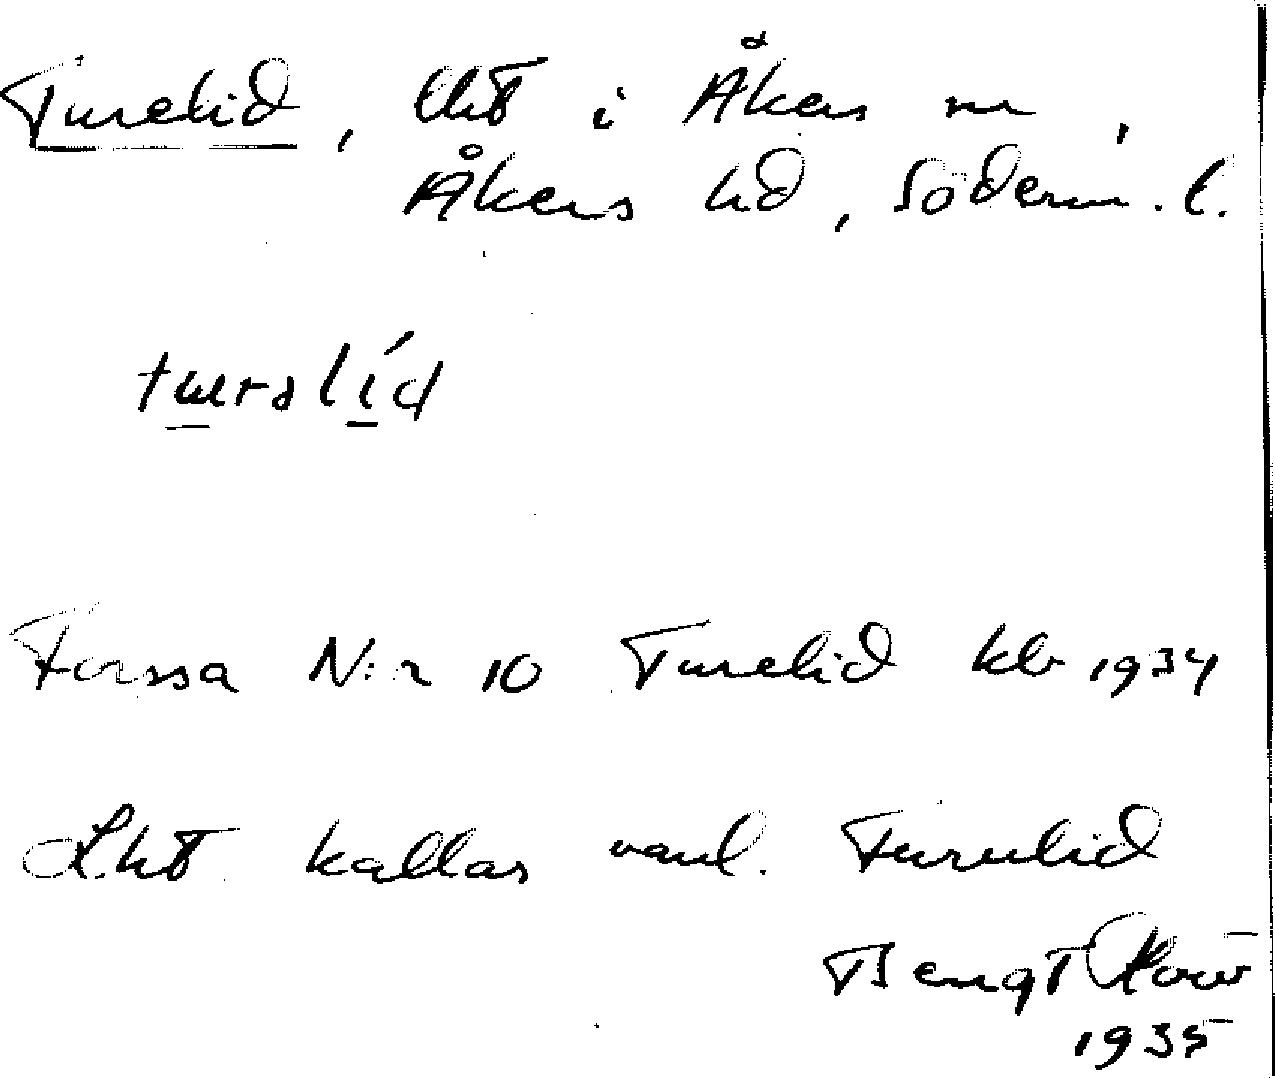 Turelid, lht i Åkers sn,
Åkers hd, Söderm. l.
turəlíd
Forssa N:r 10 Turelid kb 1934
Lht kallas vanl. Furulid
Bengt
1935